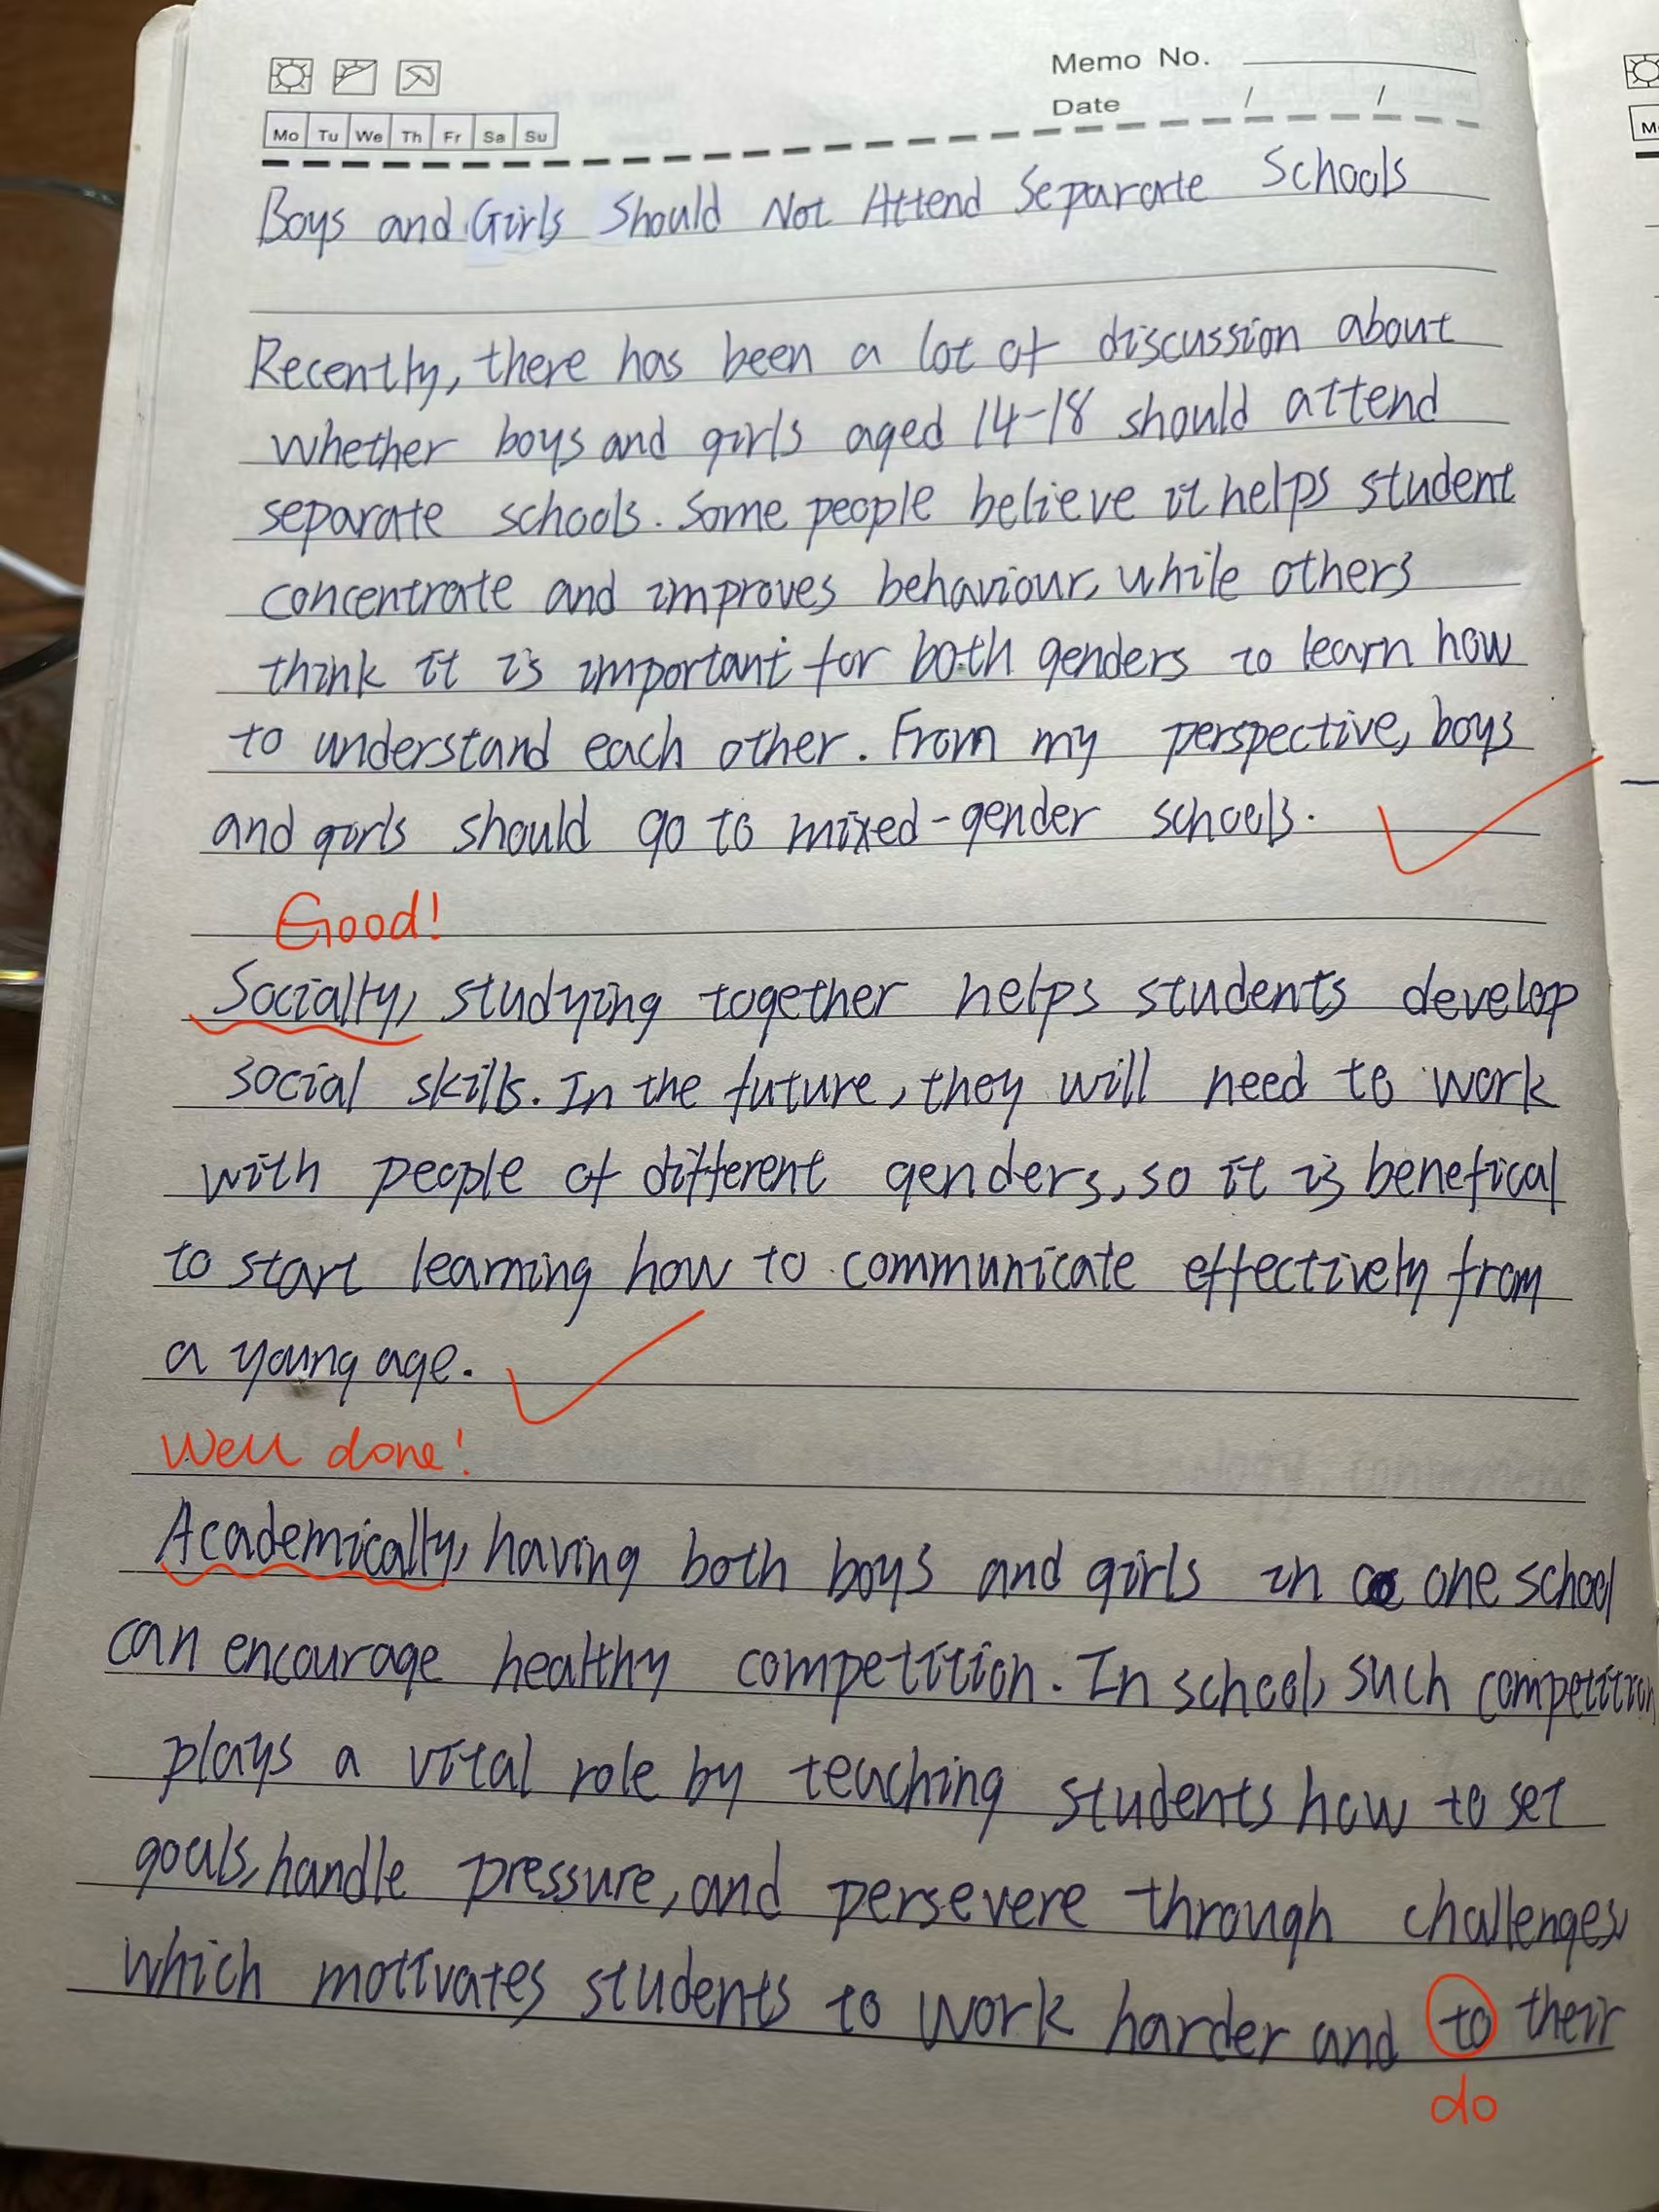 Memo No.
Date / /
Mo Tu We Th Fr Sa Su
Boys and Girls Should Not Attend Separate Schools
Recently, there has been a lot of discussion about
whether boys and girls aged 14-18 should attend
separate schools. Some people believe it helps student
concentrate and improves behaviour, while others
think it is important for both genders to learn how
to understand each other. From my perspective, boys
and girls should go to mixed-gender schools.
Good!
Socially, studying together helps students develop
social skills. In the future, they will need to work
with people of different genders, so it is benefical
to start learning how to communicate effectively from
a young age.
Well done!
Academically, having both boys and girls in one school
can encourage healthy competition. In school, such competition
plays a vital role by teaching students how to set
goals, handle pressure, and persevere through challenges,
which motivates students to work harder and to their
do